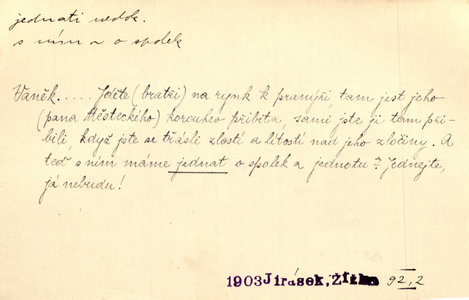 jednati nedok.
s ním a o spolek
Vaněk..... Jděte (bratři) na rynk k pranýři, tam jest jeho
(pana Městeckého) korouhev přibita, sami jste ji tam při-
bili, když jste se třásli zlostí a lítostí nad jeho zločiny. A
teď s ním máme jednat o spolek a jednotu? Jednejte,
já nebudu!
1903 Jirásek, Žižka 92, 2